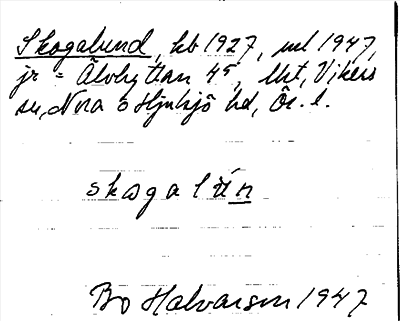 Skogalund, kb 1927, ml 1947,
jr = Älvhyttan 4⁵, lht, Vikers
sn, Nora o Hjulsjö hd, Ör. l.
skogalún
Bo Halvarson 1947